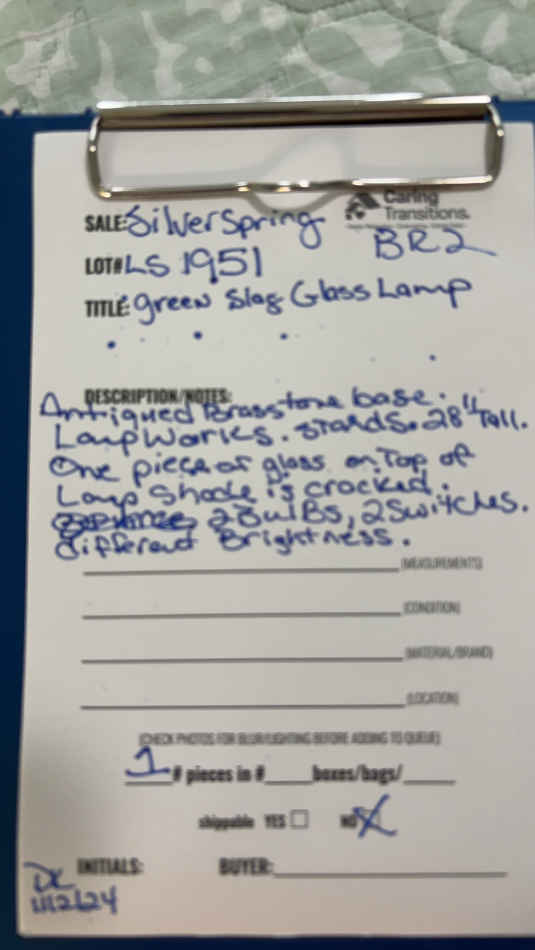 Caring
Transitions.
SALE: Silver Spring
BR2
LOT# LS 1951
TITLE: green Slag Glass Lamp
DESCRIPTION/NOTES:
Antiqued Brasstone base.
Lamp Works. Stands. 28" Tall.
One piece of glass on Top of
Lamp Shade is cracked.
2 Bulbs, 2 Switches.
different Brightness.
(MEASUREMENTS)
(CONDITION)
(MATERIAL/BRAND)
(LOCATION)
(CHECK PHOTOS FOR BLUR/LIGHTING BEFORE ADDING TO QUEUE)
1 # pieces in #____boxes/bags/____
shippable YES ☐ NO X
INITIALS: BUYER:
DC
11/12/24